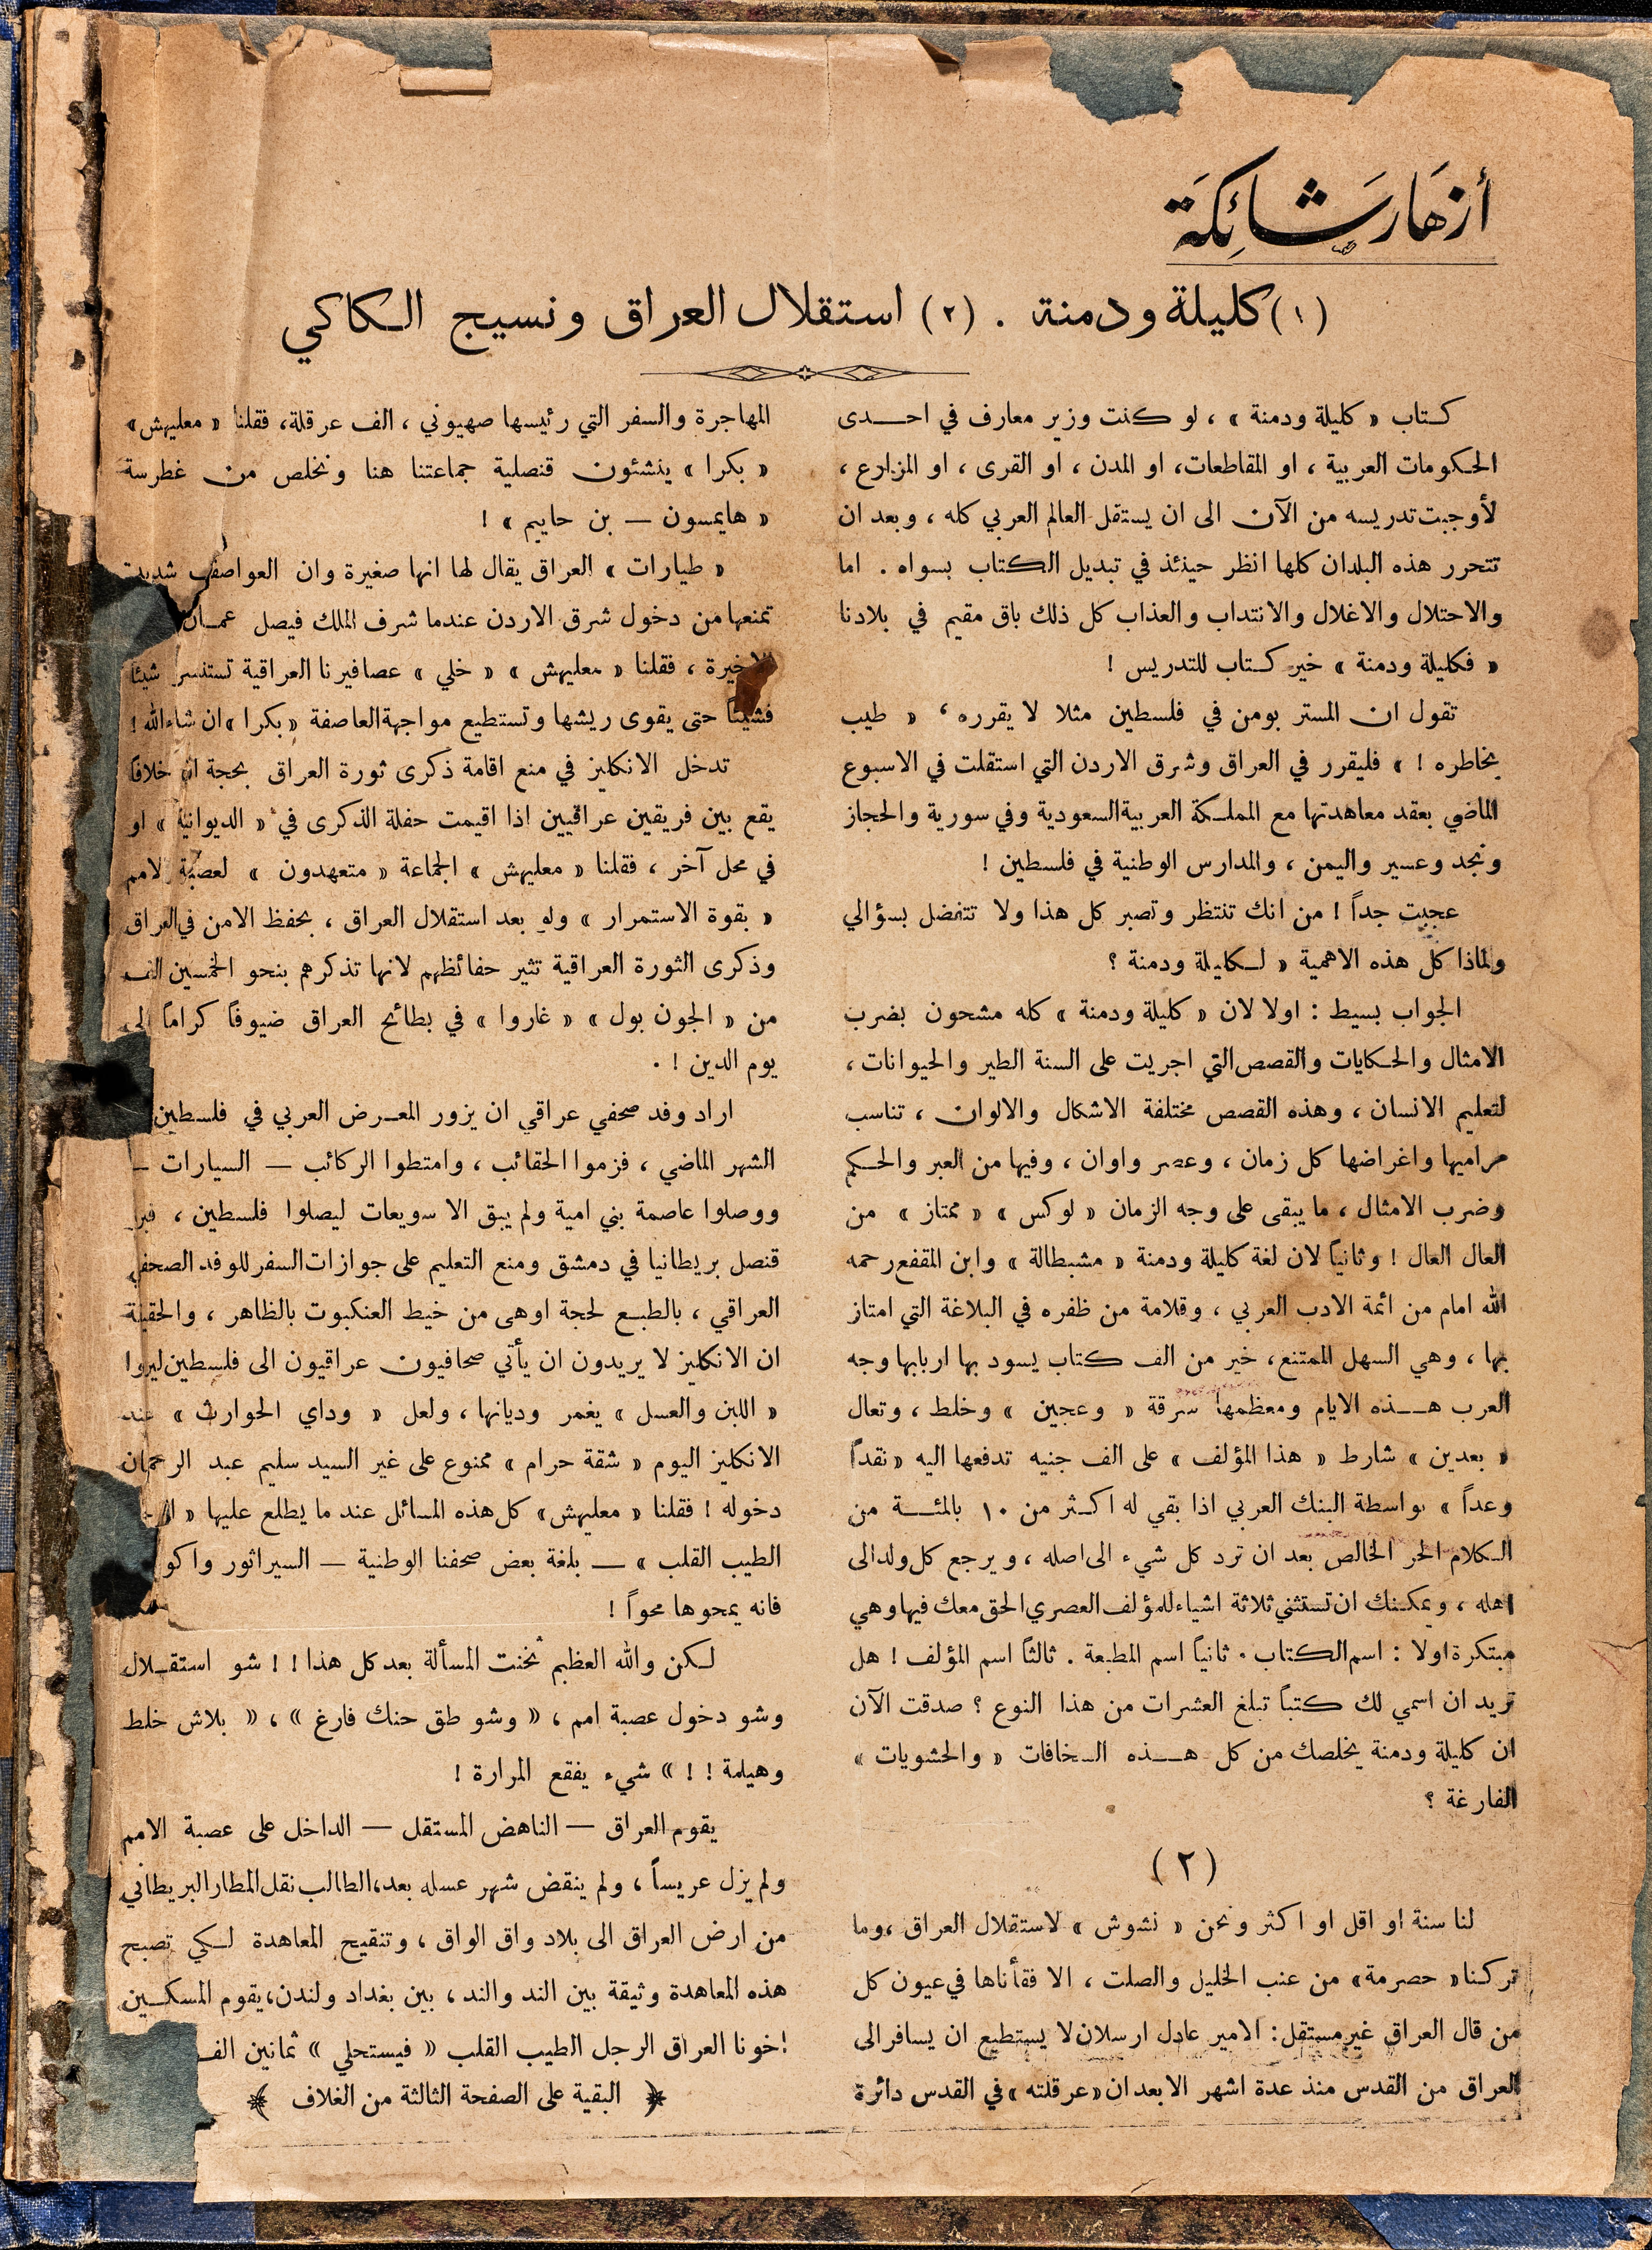 أزهار شائكة
(١) كليلة ودمنة . (٢) استقلال العراق ونسيج الكاكي
كتاب « كليلة ودمنة » ، لو كنت وزير معارف في احدى
الحكومات العربية ، او المقاطعات، او المدن ، او القرى ، او المزارع ،
لأوجبت تدريسه من الآن الى ان يستقل العالم العربي كله ، وبعد ان
تتحرر هذه البلدان كلها انظر حينئذ في تبديل الكتاب بسواه . اما
والاحتلال والاغلال والانتداب والعذاب كل ذلك باق مقيم في بلادنا
« فكليلة ودمنة » خير كتاب للتدريس !
تقول ان المستر بومن في فلسطين مثلا لا يقرره ، « طيب
بخاطره ! » فليقرر في العراق وشرق الاردن التي استقلت في الاسبوع
الماضي بعقد معاهدتها مع المملكة العربية السعودية وفي سورية والحجاز
ونجد وعسير واليمن ، والمدارس الوطنية في فلسطين !
عجبت جداً ! من انك تنتظر وتصبر كل هذا ولا تتفضل بسؤالي
ولماذا كل هذه الاهمية « لكليلة ودمنة ؟
الجواب بسيط : اولا لان « كليلة ودمنة » كله مشحون بضرب
الامثال والحكايات والقصص التي اجريت على السنة الطير والحيوانات ،
لتعليم الانسان ، وهذه القصص مختلفة الاشكال والالوان ، تناسب
مراميها واغراضها كل زمان ، وعصر واوان ، وفيها من العبر والحكم
وضرب الامثال ، ما يبقى على وجه الزمان « لوكس » « ممتاز » من
العال العال ! وثانياً لان لغة كليلة ودمنة « مشبطالة » وابن المقفع رحمه
الله امام من ائمة الادب العربي ، وقلامة من ظفره في البلاغة التي امتاز
بها ، وهي السهل الممتنع ، خير من الف كتاب يسود بها اربابها وجه
العرب هذه الايام ومعظمها سرقة « وعجين » وخلط ، وتعال
« بعدين » شارط « هذا المؤلف » على الف جنيه تدفعها اليه « نقداً
وعداً » بواسطة البنك العربي اذا بقي له اكثر من ١٠ بالمئة من
الكلام الحر الخالص بعد ان ترد كل شيء الى اصله ، ويرجع كل ولد الى
اهله ، ويمكنك ان تستثني ثلاثة اشياء للمؤلف العصري الحق معك فيها وهي
مبتكرة اولا : اسم الكتاب . ثانياً اسم المطبعة . ثالثاً اسم المؤلف ! هل
تريد ان اسمي لك كتباً تبلغ العشرات من هذا النوع ؟ صدقت الآن
ان كليلة ودمنة يخلصك من كل هذه السخافات « والحشويات »
الفارغة ؟
(٢)
لنا سنة او اقل او اكثر ونحن « نشوش » لاستقلال العراق ، وما
تركنا « حصرمة » من عنب الخليل والصلت ، الا فقأناها في عيون كل
من قال العراق غير مستقل : الامير عادل ارسلان لا يستطيع ان يسافر الى
العراق من القدس منذ عدة اشهر الا بعد ان « عرقلته » في القدس دائرة
المهاجرة والسفر التي رئيسها صهيوني ، الف عرقلة، فقلنا « معليهش »
« بكرا » ينشئون قنصلية جماعتنا هنا ونخلص من غطرسة
« هايمسون — بن حاييم » !
« طيارات » العراق يقال لها انها صغيرة وان العواصف شديدة
تمنعها من دخول شرق الاردن عندما شرف الملك فيصل عمان
الاخيرة ، فقلنا « معليهش » « خلي » عصافيرنا العراقية تستنسر شيئا
فشيئاً حتى يقوى ريشها وتستطيع مواجهة العاصفة « بكرا » ان شاء الله !
تدخل الانكليز في منع اقامة ذكرى ثورة العراق بحجة ان خلافا
يقع بين فريقين عراقيين اذا اقيمت حفلة الذكرى في « الديوانية » او
في محل آخر ، فقلنا « معليهش » الجماعة « متعهدون » لعصبة الامم
« بقوة الاستمرار » ولو بعد استقلال العراق ، بحفظ الامن في العراق
وذكرى الثورة العراقية تثير حفائظهم لانها تذكرهم بنحو الخمسين الف
من « الجون بول » « غاروا » في بطائح العراق ضيوفاً كراماً الى
يوم الدين ! .
اراد وفد صحفي عراقي ان يزور المعرض العربي في فلسطين
الشهر الماضي ، فزموا الحقائب ، وامتطوا الركائب — السيارات —
ووصلوا عاصمة بني امية ولم يبق الا سويعات ليصلوا فلسطين ،
قنصل بريطانيا في دمشق ومنع التعليم على جوازات السفر للوفد الصحفي
العراقي ، بالطبع لحجة اوهى من خيط العنكبوت بالظاهر ، والحقيقة
ان الانكليز لا يريدون ان يأتي صحافيون عراقيون الى فلسطين ليروا
« اللبن والعسل » يغمر وديانها ، ولعل « وداي الحوارث » عند
الانكليز اليوم « شقة حرام » ممنوع على غير السيد سليم عبد الرحمان
دخوله ! فقلنا « معليهش » كل هذه المسائل عند ما يطلع عليها «
الطيب القلب » — بلغة بعض صحفنا الوطنية — السيراثور واكو
فانه يمحوها محواً !
لكن والله العظيم ثخنت المسألة بعد كل هذا ! ! شو استقلال
وشو دخول عصبة امم ، « وشو طق حنك فارغ » ، « بلاش خلط
وهيلمة ! ! » شيء يفقع المرارة !
يقوم العراق — الناهض المستقل — الداخل على عصبة الامم
ولم يزل عريساً ، ولم ينقض شهر عسله بعد، الطالب نقل المطار البريطاني
من ارض العراق الى بلاد واق الواق ، وتنقيح المعاهدة لكي تصبح
هذه المعاهدة وثيقة بين الند والند ، بين بغداد ولندن، يقوم المسكين
اخونا العراق الرجل الطيب القلب « فيستحلي » ثمانين الف
البقية على الصفحة الثالثة من الغلاف